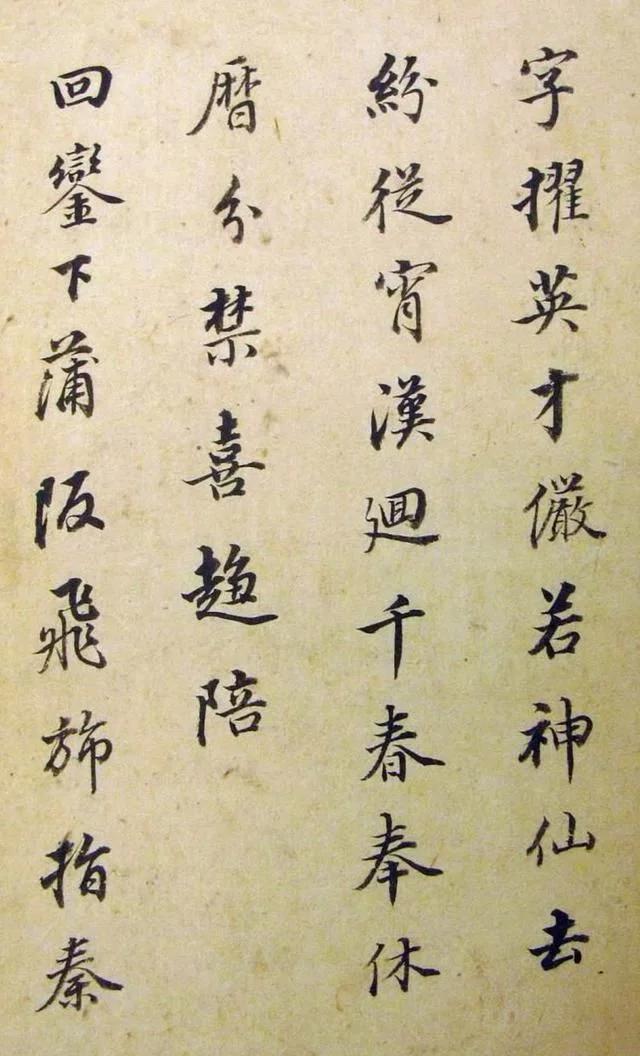 字擢英才儼若神仙去
紛從宵漢廻千春奉休
曆分禁喜趍陪
回鑾下蒲阪飛斾指秦